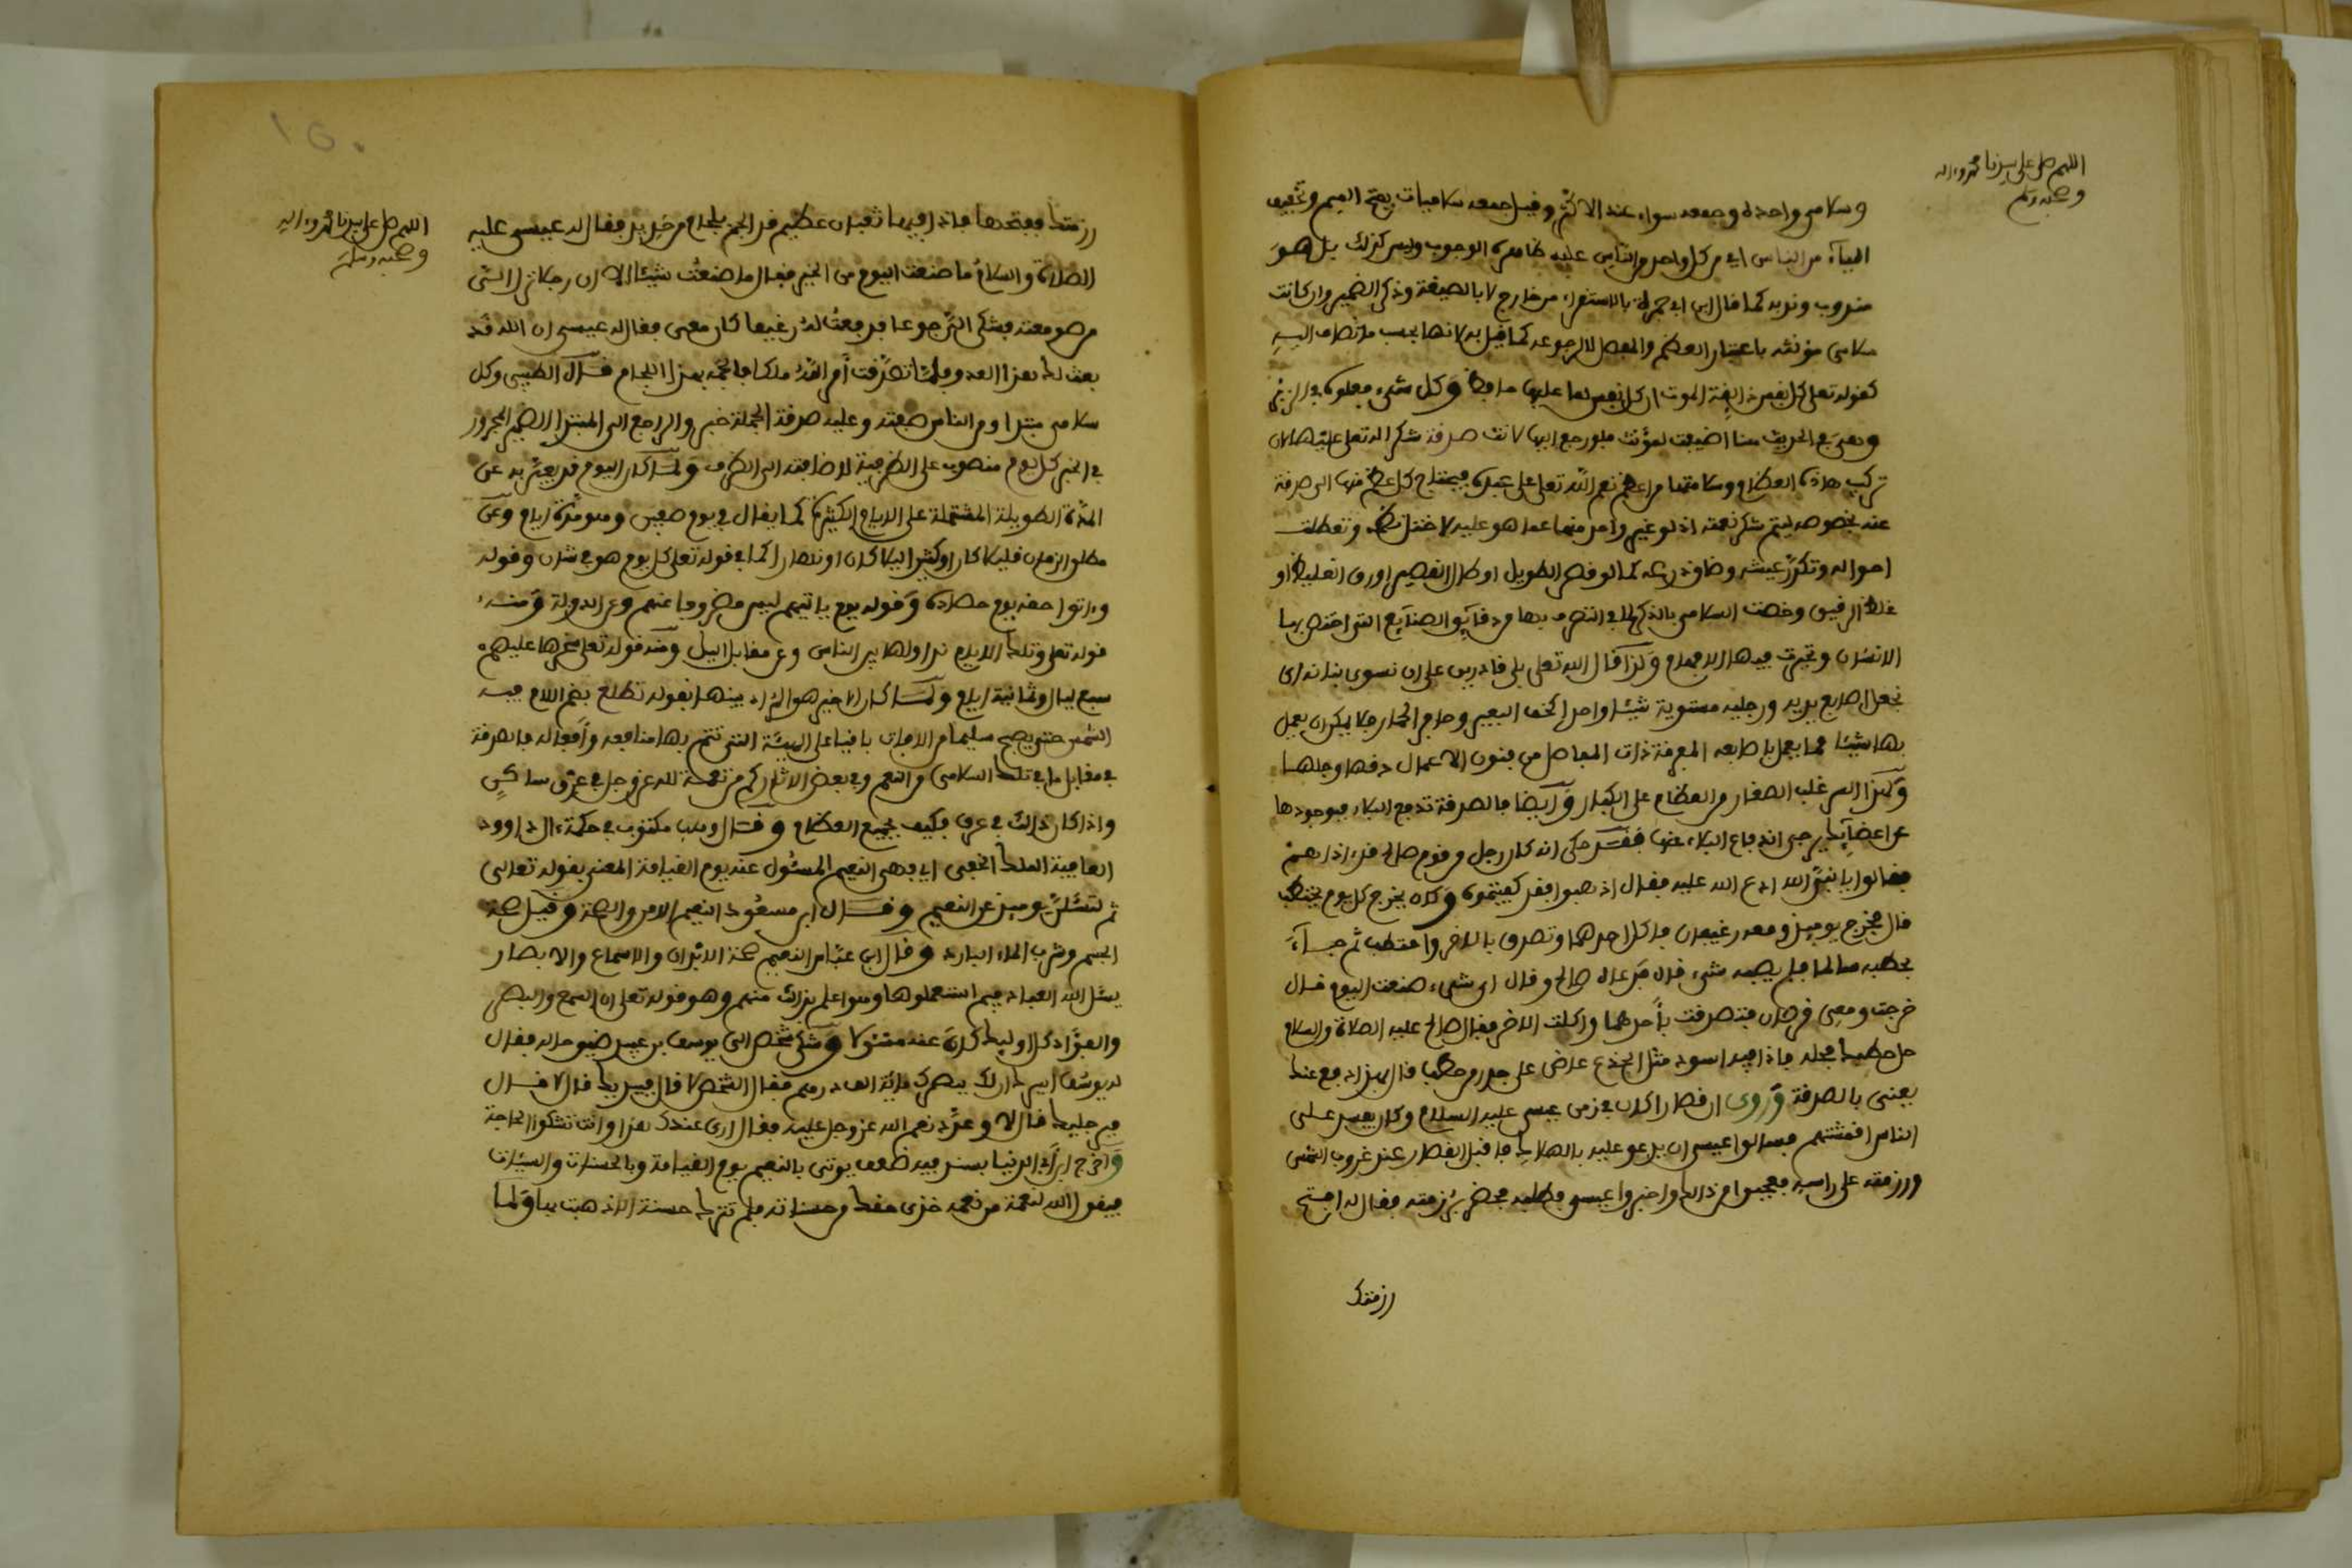 اللهم صل على سيدنا محمد وءاله
وصحبه وسلم
وسلامى واحده وجمعه سواء عند الاكثر وقيل جمعه سلاميات بفتح الميم وتخفيف
الياء من الناس اي من كل واحد من الناس عليه ظاهره الوجوب وليس كذلك بل هو
مندوب وندبه كما قال ابن ابي جمرة بالاستقراء من خارج لا بالصيغة وذكر الضمير وان كانت
سلامى مؤنثة باعتبار العظم والمفصل لا لرجوعه كما قيل به لانها بحسب ما تضاف اليه
كقوله تعلى كل نفس ذايقة الموت ان كل نفس لما عليها حافظ وكل شيء فعلوه في الزبر
وهي في الحديث هنا اضيفت لمؤنث فلو رجع اليها لانث صدقة شكرا لله تعلى عليها لان
تركيب هاذه العظام وسلامتها من اعظم نعم الله تعلى على عبده فيحتاج كل عظم منها الى صدقة
عنه بخصوصه ليتم شكر نعمته اذ لو غير واحد منها عما هو عليه لاختل نظامه وتعطلت
احواله وتكدر عيشه وضاق ذرعه كما لو قصر الطويل او طال القصير او رق الغليظ او
غلظ الرقيق وخصت السلامى بالذكر لما في التصرف بها من دقايق الصنايع التي اختص بها
الانسان وتحيرت فيها الافهام ولذا قال الله تعلى بلى قادرين على ان نسوى بنانه اى
نجعل اصابع يديه ورجليه مستوية شيئا واحدا كخف البعير وحافر الحمار فلا يمكن ان يعمل
بها شيئا مما يعمل باصابعه المفرقة ذات المفاصل من فنون الاعمال دقها وجلها
ولهذا السر غلب الصغار من العظام على الكبار وايضا فالصدقة تدفع البلاء فبوجودها
عن اعضايه يرجى اندفاع البلاء عنها فقد حكى انه كان رجل من قوم صالح قد ءاذاهم
فقالوا يا نبي الله ادع الله عليه فقال اذهبوا فقد كفيتموه وكان يخرج كل يوم يحتطب
قال فخرج يوميذ ومعه رغيفان فاكل احدهما وتصدق بالاخر واحتطب ثم جاء
بحطبه سالما فلم يصبه شيء قال فدعاه صالح وقال اى شيء صنعت اليوم قال
خرجت ومعى قرصان فتصدقت باحدهما واكلت الاخر فقال صالح عليه الصلاة والسلام
حل حطبك فحله فاذا فيه اسود مثل الجذع عاض على جذر من حطب فقال بهذا دفع عنك
يعنى بالصدقة وروى ان قصارا كان في زمن عيسى عليه السلام وكان يفسد على
الناس اقمشتهم فسالوا عيسى ان يدعو عليه بالهلاك فاقبل القصار عند غروب الشمس
ورزمته على راسه فعجبوا من ذالك واخبروا عيسى فطلبه فحضر برزمته فقال له افتح
رزمتك
اللهم صل على سيدنا محمد وءاله
وصحبه وسلم
رزمتك ففتحها فاذا فيها ثعبان عظيم قد الجم بلجام من حديد فقال له عيسى عليه
الصلاة والسلام ما صنعت اليوم من الخير فقال ما صنعت شيئا الا ان رجلا نزل الي
من صومعته فشكى الي جوعا فدفعت له رغيفا كان معي فقال له عيسى ان الله قد
بعث لك هذا العدو فلما تصدقت امر الله ملكا فالجمه بهذا اللجام قال الطيبي وكل
سلامى مبتدا ومن الناس صفته وعليه صدقة الجملة خبر والراجع الى المبتدا الضمير المجرور
في الخبر كل يوم منصوب على الظرفية لاضافته الى الظرف ولما كان اليوم قد يعبر به عن
المدة الطويلة المشتملة على الايام الكثيرة كما يقال يوم صفين وهو مدة ايام وعن
مطلق الزمان قليلا كان او كثيرا ليلا كان او نهارا كما في قوله تعلى كل يوم هو في شان وقوله
وءاتوا حقه يوم حصاده وقوله يوم ياتيهم ليس مصروفا عنهم وعن الدولة ومنه
قوله تعلى وتلك الايام نداولها بين الناس وعن مقابل الليل ومنه قوله تعلى سخرها عليهم
سبع ليال وثمانية ايام ولما كان الاخير هو المراد بينها بقوله تطلع بضم اللام فيه
الشمس حتى يصبح سليما من الافات باقيا على الهيئة التي تتم بها منافعه وافعاله فالصدقة
في مقابل ما في تلك السلامى من النعم وفي بعض الاثار كم من نعمة لله عز وجل في عرق ساكن
واذا كان ذالك في عرق فكيف بجميع العظام وقال وهب مكتوب في حكمة ءال داوود
العافية الملك الخفى اي وهي النعيم المسئول عنه يوم القيامة المعنى بقوله تعالى
ثم لتسئلن يوميذ عن النعيم وقال ابن مسعود النعيم الامن والصحة وقيل صحة
الجسم وشرب الماء البارد وقال ابن عباس النعيم صحة الابدان والاسماع والابصار
يسئل الله العباد فيم استعملوها وهو اعلم بذلك منهم وهو قوله تعلى ان السمع والبصر
والفؤاد كل اوليك كان عنه مسئولا وشكى شخص الى يوسف بن عبيد ضيق حاله فقال
له يوسف ايسرك ان لك ببصرك ماية الف درهم فقال الشخص لا قال فبيديك قال لا قال
فبرجليك قال لا وعدد نعم الله عز وجل عليه فقال ارى عندك هذا وانت تشكوا الحاجة
واخرج ابن ابي الدنيا بسند فيه ضعف يوتى بالنعيم يوم القيامة وبالحسنات والسيئات
فيقول الله لنعمة من نعمه خذى حقك من حسناته فلم تترك حسنة الا ذهبت بها ولما